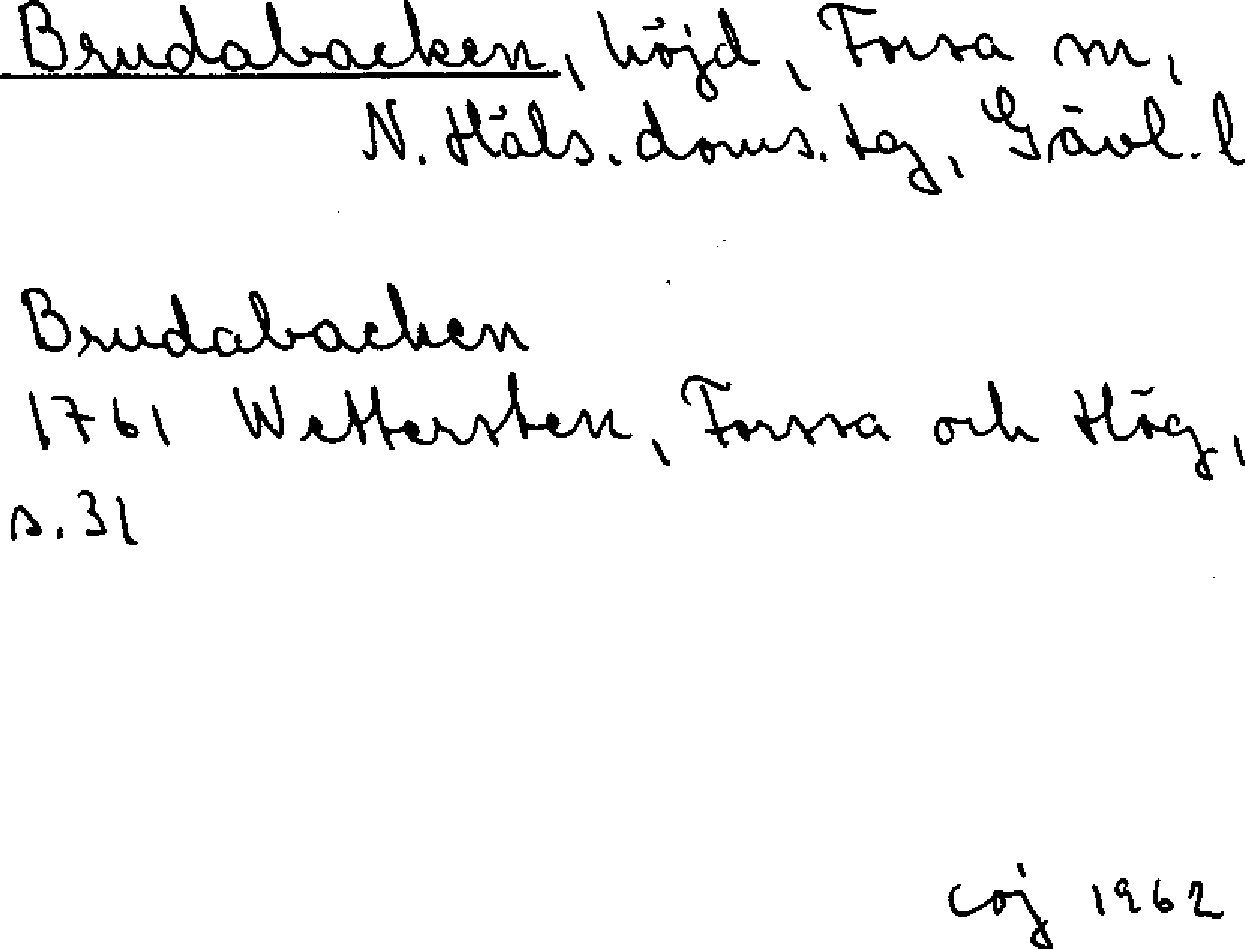 Brudabacken, höjd, Forsa sn,
N. Häls. doms. tg, Gävl. l
Brudabacken
1761 Wettersten, Forssa och Hög,
s. 31
coj 1962